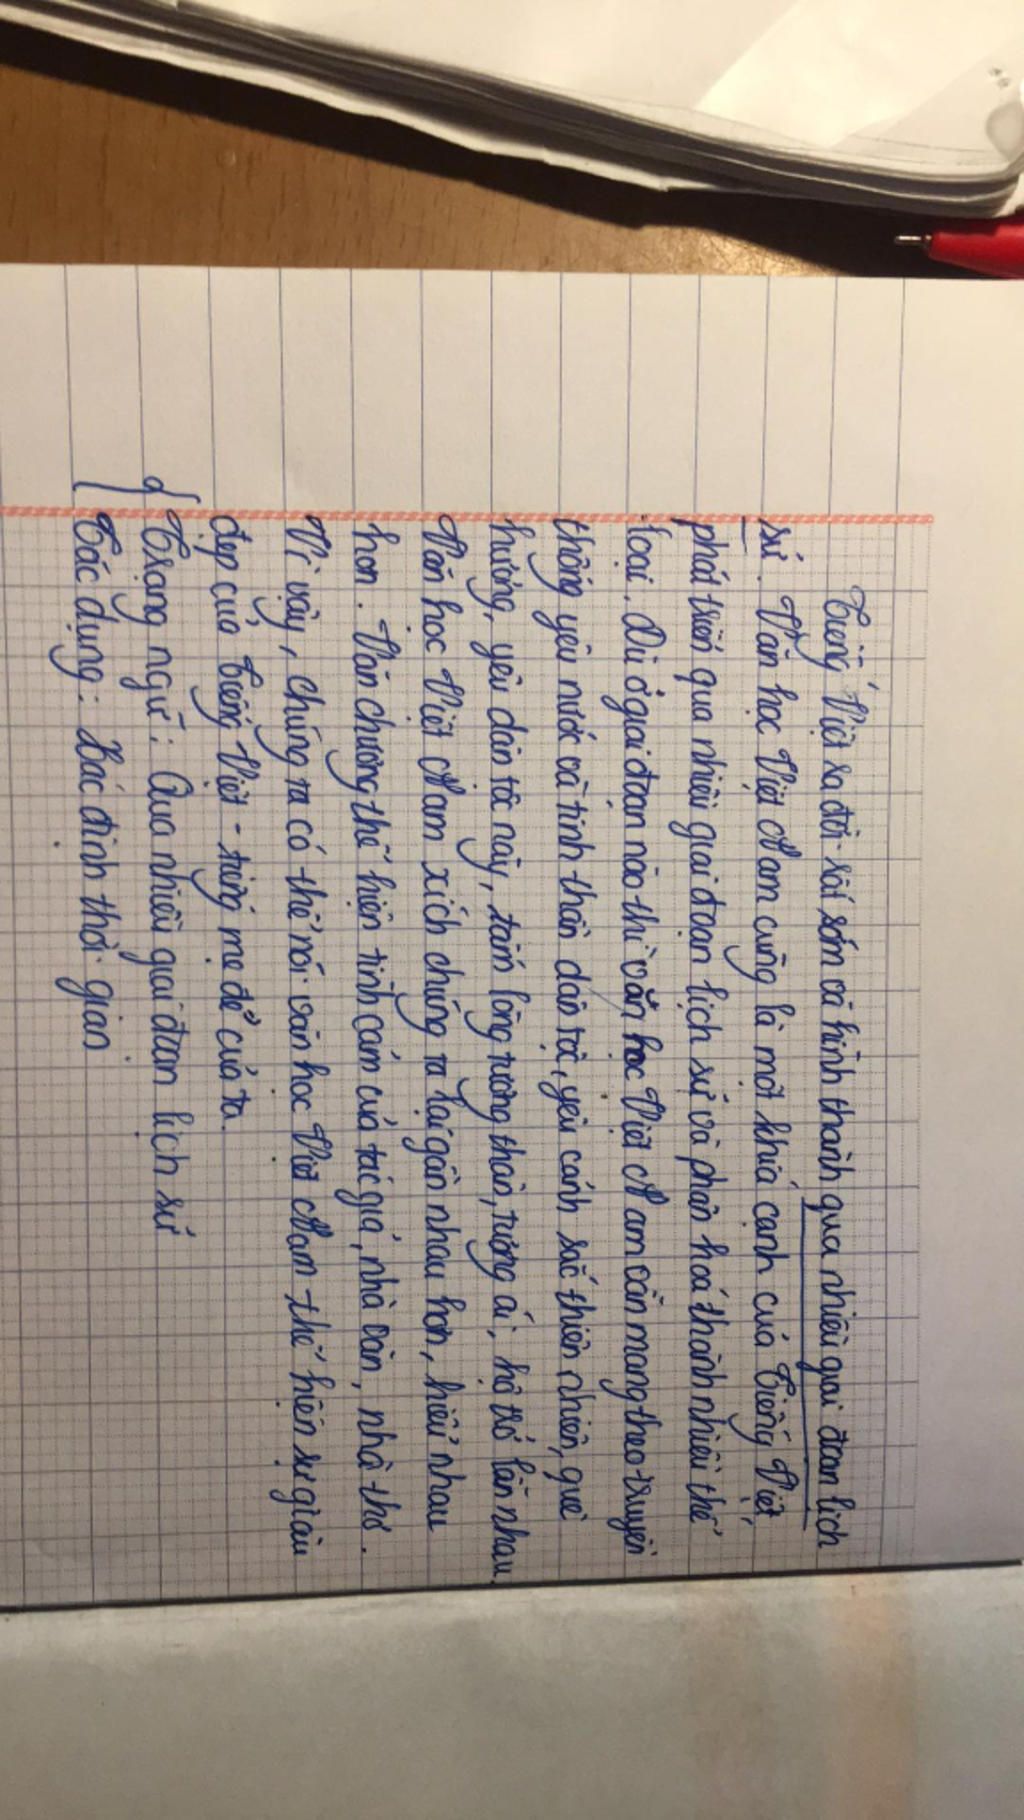 Tiếng Việt ra đời rất sớm và hình thành qua nhiều giai đoạn lịch
sử. Văn học Việt Nam cũng là một khía cạnh của Tiếng Việt,
phát triển qua nhiều giai đoạn lịch sử và phân hoá thành nhiều thể
loại. Dù ở giai đoạn nào thì văn học Việt Nam vẫn mang theo truyền
thống yêu nước và tinh thần dân tộc, yêu cảnh sắc thiên nhiên, quê
hương, yêu dân tộc này, tấm lòng tương thân, tương ái, hỗ trợ lẫn nhau.
Văn học Việt Nam xích chúng ta lại gần nhau hơn, hiểu nhau
hơn. Văn chương thể hiện tình cảm của tác giả, nhà văn, nhà thơ.
Vì vậy, chúng ta có thể nói văn học Việt Nam thể hiện sự giàu
đẹp của Tiếng Việt - tiếng mẹ đẻ của ta.
Trạng ngữ: Qua nhiều giai đoạn lịch sử
Tác dụng: Xác định thời gian